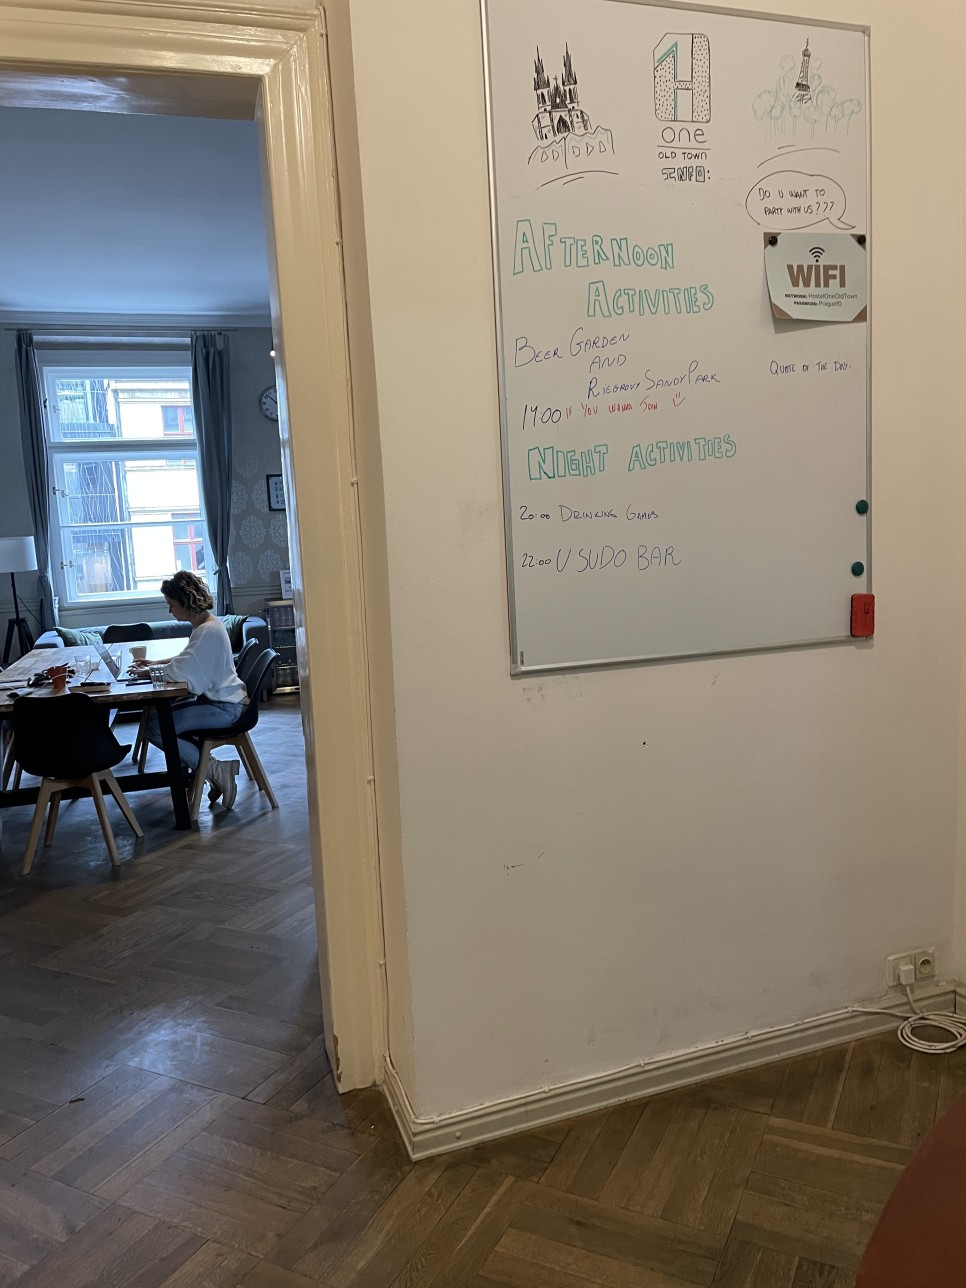 one
OLD TOWN
INFO:
DO U WANT TO
PARTY WITH US???
WiFi
NETWORK: HostelOneOldTown
PASSWORD: Prague10
AFTERNOON
ACTIVITIES
BEER GARDEN
AND
RIEGROVY SANDY PARK
17:00 IF YOU WANNA JOIN
QUOTE OF THE DAY:
NIGHT ACTIVITIES
20:00 DRINKING GAMES
22:00 U SUDO BAR